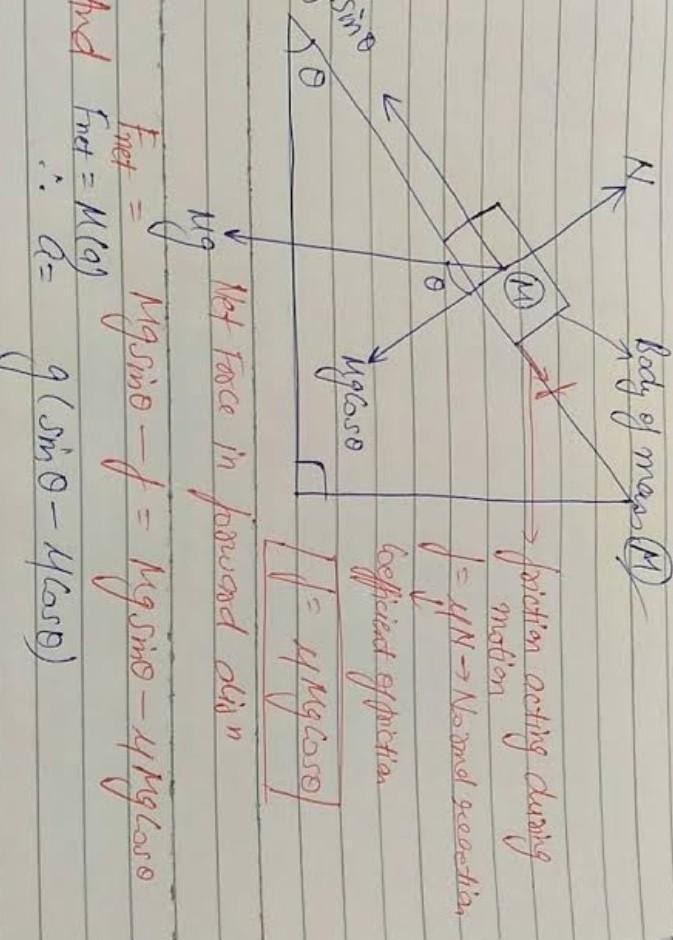 N
Body of mass (M)
sinθ
(M)
friction acting during
motion
f = μN → Normal reaction
Coefficient of friction
f = μMgCosθ
θ
MgCosθ
θ
Mg
Net Force in forward dirⁿ
Fnet = Mgsinθ - f = Mgsinθ - μMgCosθ
And Fnet = M(a)
∴ a = g(sinθ - μCosθ)